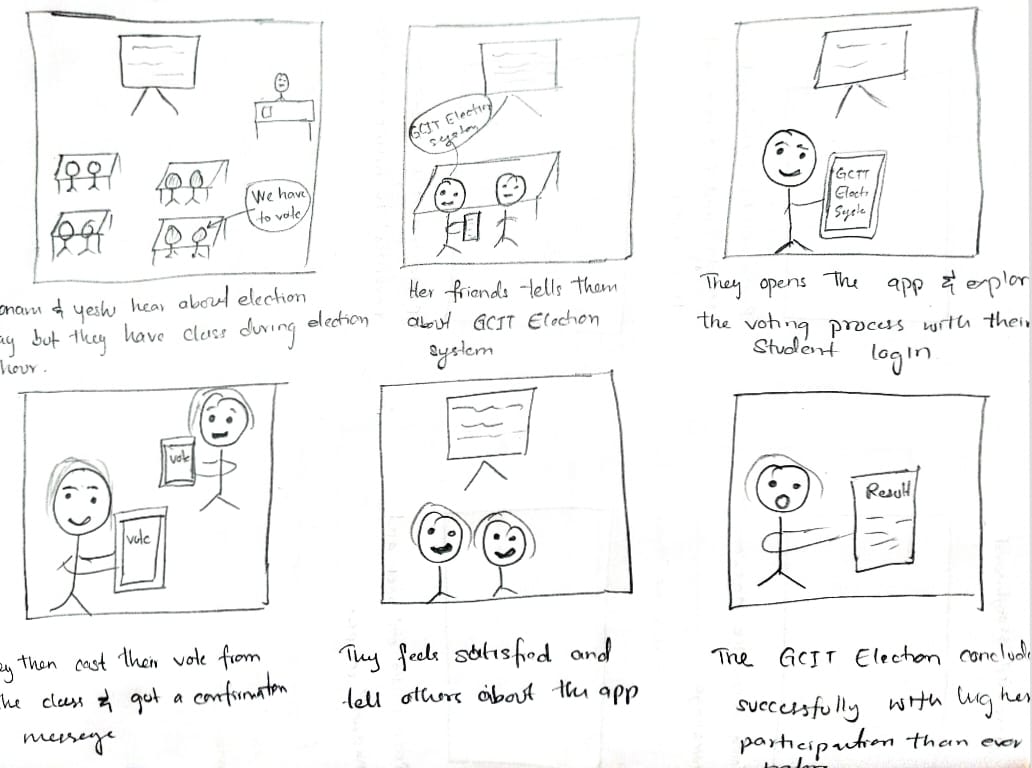 We have
to vote
onam & yeshi hear about election
ay but they have class during election
hour.
GCIT Election
system
Her friends tells them
about GCIT Election
system
GCIT
Electi
Syste
They opens the app & explor
the voting process with their
Student login
vote
vote
ey then cast their vote from
the class & got a confirmation
message
They feels satisfied and
tell others about the app
Result
The GCIT Election conclude
successfully with higher
participation than ever